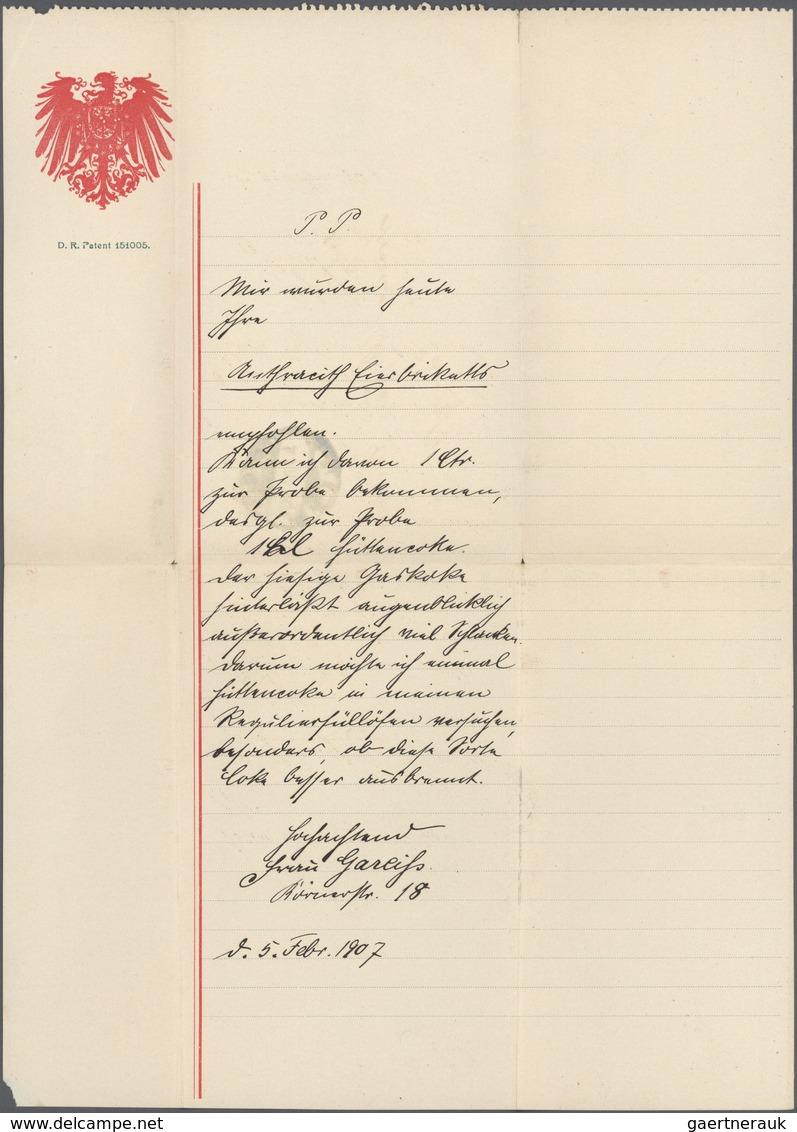 D. R. Patent 151005.
P. P.
Mir wurden heute
Ihre
Anthracith Eierbriketts
empfohlen.
Kann ich davon 1 Ctr.
zur Probe bekommen,
desgl. zur Probe
1 hl Hüttencoke.
Der hiesige Gaskoke
hinterläßt augenblicklich
außerordentlich viel Schlacken.
Darum möchte ich einmal
Hüttencoke in meinen
Regulierfüllöfen versuchen,
besonders, ob diese Sorte
Coke besser ausbrennt.
Hochachtend
Frau Gareiss.
Körnerstr. 18
d. 5. Febr. 1907
gaertnerauk
delcampe.net